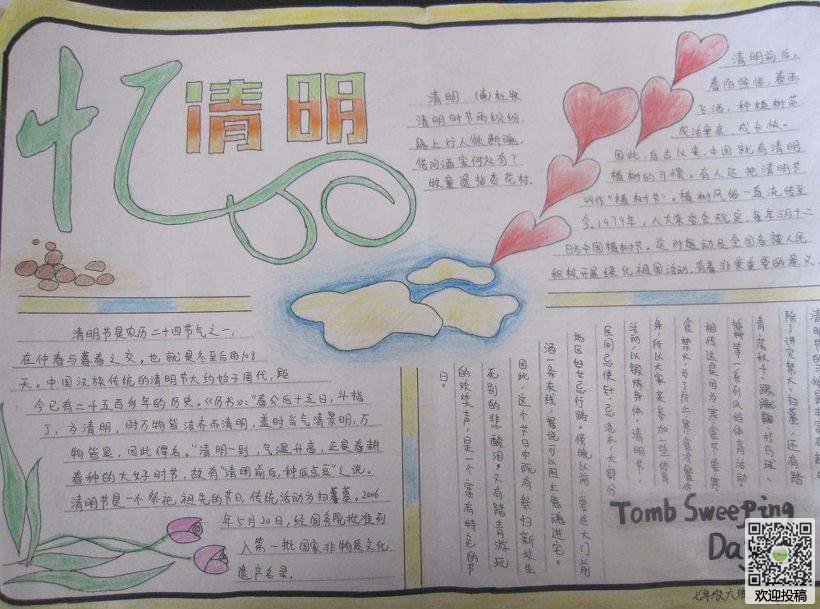 忆清明
清明 (唐)杜牧
清明时节雨纷纷,
路上行人欲断魂。
借问酒家何处有?
牧童遥指杏花村。
清明前后,
春阳照临,春雨
飞洒,种植树苗
成活率高,成长快。
因此,自古以来,中国就有清明
植树的习惯。有人还把清明节
叫作“植树节”。植树风俗一直流传至
今。1979年,人大常委会规定,每年三月十二
日为中国植树节。这对动员全国各族人民
积极开展绿化祖国活动,有着非常重要的意义
清明节是农历二十四节气之一,
在仲春与暮春之交,也就是冬至后的108
天。中国汉族传统的清明节大约始于周代,距
今已有二千五百多年的历史。《历书》:“春分后十五日,斗指
丁,为清明,时万物皆洁齐而清明,盖时当气清景明,万
物皆显,因此得名。”清明一到,气温升高,正是春耕
春种的大好时节,故有“清明前后,种瓜点豆”之说。
清明节是一个祭祀祖先的节日,传统活动为扫墓。2006
年5月20日,经国务院批准列
入第一批国家非物质文化
遗产名录。
除了讲究禁火、扫墓,还有踏
青、荡秋千、踢蹴鞠、打马球、
插柳等一系列风俗体育活动。
相传这是因为寒食节要寒
食禁火,为了防止寒食冷餐伤
身,所以大家来参加一些体育
活动,以锻炼身体。清明节,
民间忌使针,忌洗衣,大部分
地区妇女忌行路。傍晚以前,要在大门前
洒一条灰线,据说可以阻止鬼魂进宅。
因此,这个节日中既有祭扫新坟生
死别的悲酸泪,又有踏青游玩
的欢笑声,是一个富有特色的节
日。
Tomb Sweeping
Day
七年级六班
欢迎投稿